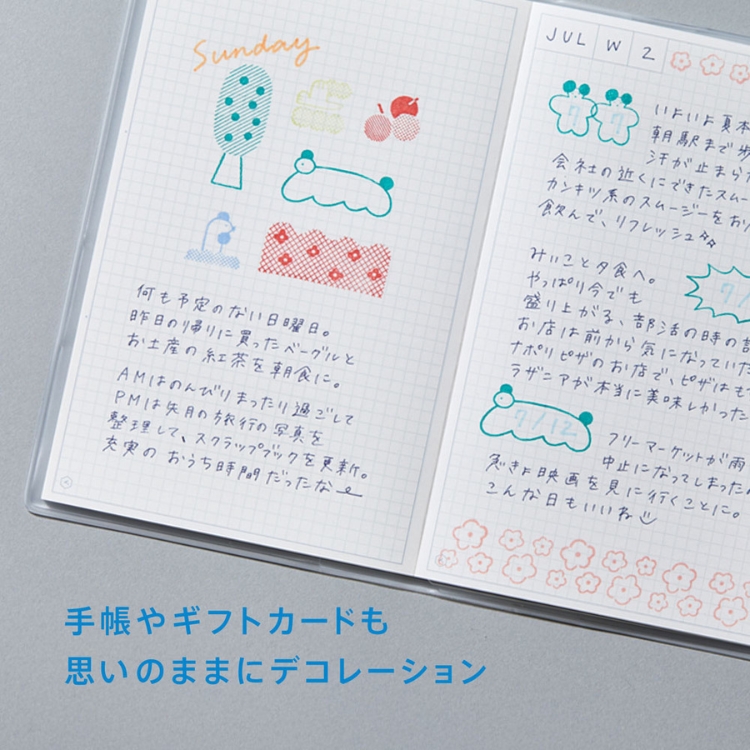 Sunday
何も予定のない日曜日。
昨日の帰りに買ったベーグルと
お土産の紅茶を朝食に。
AMはのんびりまったり過ごして
PMは先月の旅行の写真を
整理して、スクラップブックを更新。
充実の おうち時間だったな
JUL W 2
7 7
いよいよ夏本
朝駅まで歩
汗が止まら
会社の近くにできたスムー
カンキツ系のスムージーをお
飲んで、リフレッシュ
みいこと夕食へ。
やっぱり今でも
盛り上がる、部活の時の
7/
お店は前から気になっていた
ナポリピザのお店で、ピザはも
ラザニアが本当に美味しかった
7/12
フリーマーケットが雨
中止になってしまった
急きょ映画を見に行くことに。
こんな日もいいね
手帳やギフトカードも
思いのままにデコレーション